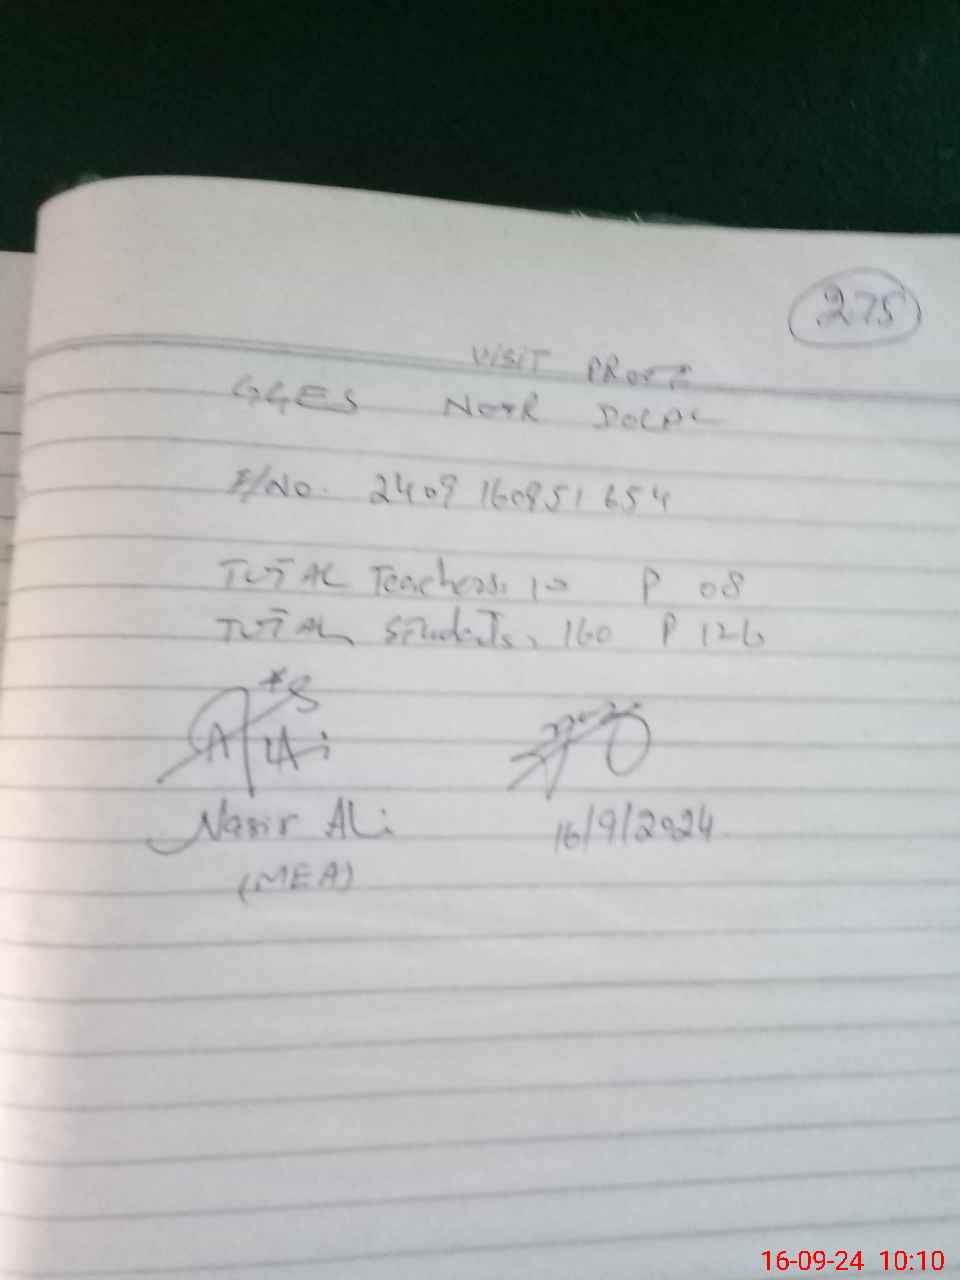 275
VISIT PROOF
GGES NOOR DOLAL
F/NO. 2409160951654
TOTAL Teachers. 10 P 08
TOTAL Students. 160 P 126
Nasir Ali
16/9/2024
(MEA)
16-09-24 10:10